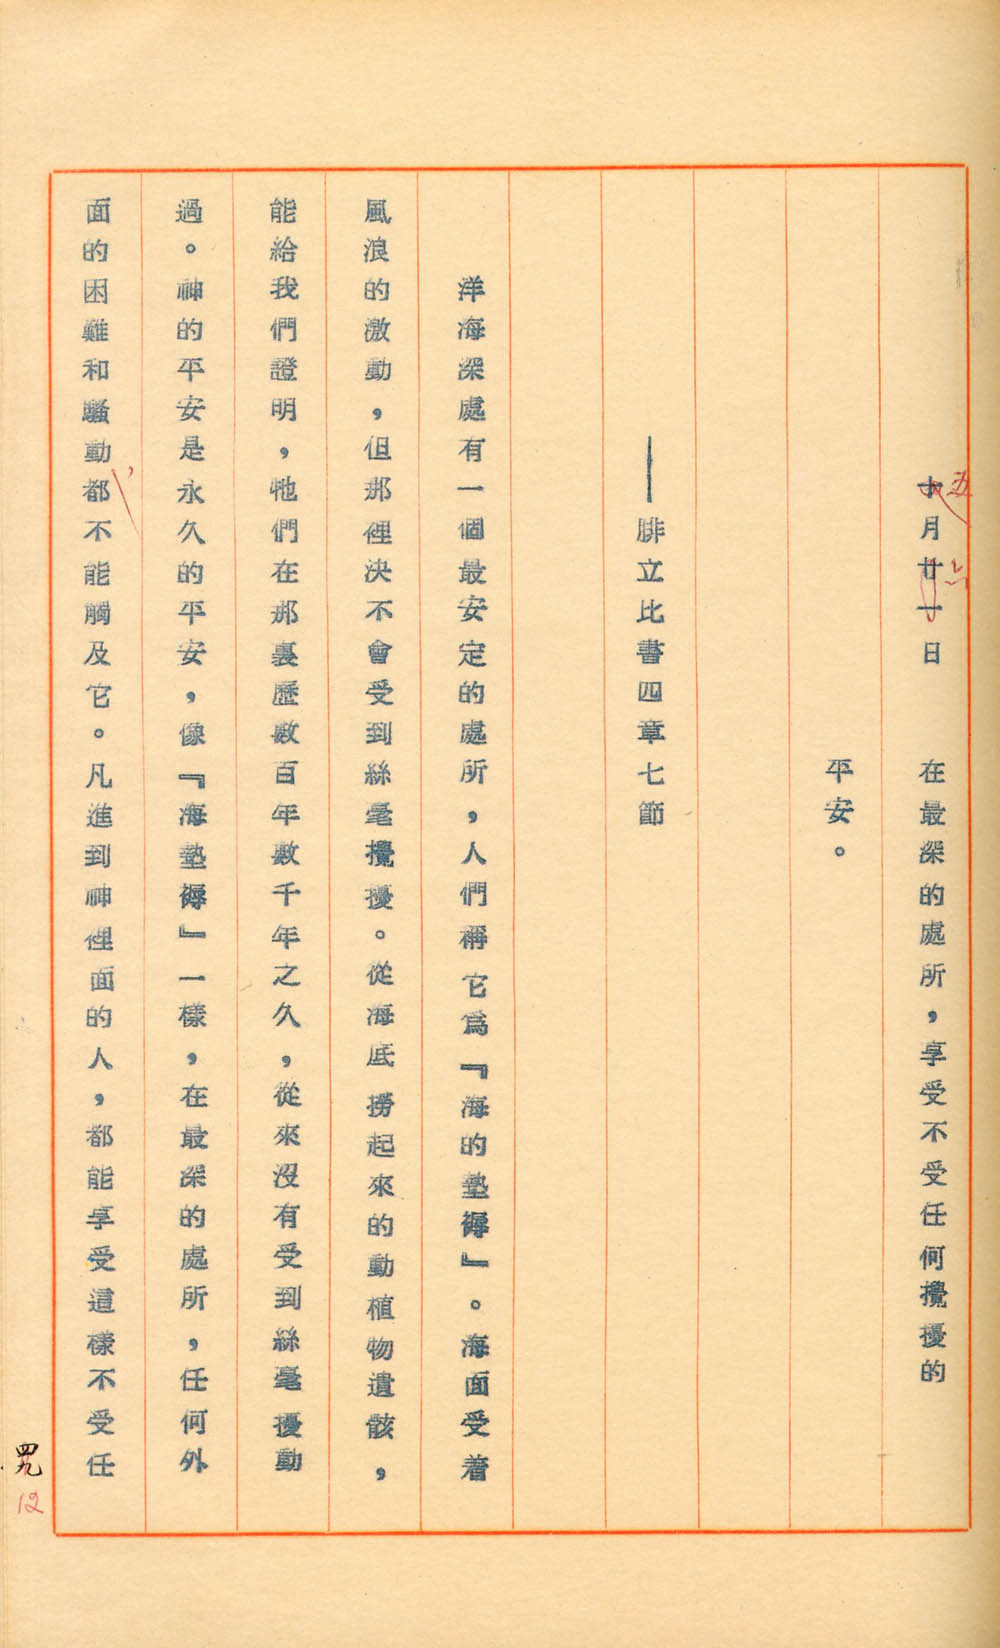 十月廿一日　在最深的處所，享受不受任何攪擾的
五
六
平安。
——腓立比書四章七節
洋海深處有一個最安定的處所，人們稱它爲『海的墊褥』。海面受着
風浪的激動，但那裡決不會受到絲毫攪擾。從海底撈起來的動植物遺骸，
能給我們證明，牠們在那裏歷數百年數千年之久，從來沒有受到絲毫擾動
過。神的平安是永久的平安，像『海墊褥』一樣，在最深的處所，任何外
面的困難和騷動都不能觸及它。凡進到神裡面的人，都能享受這樣不受任
12